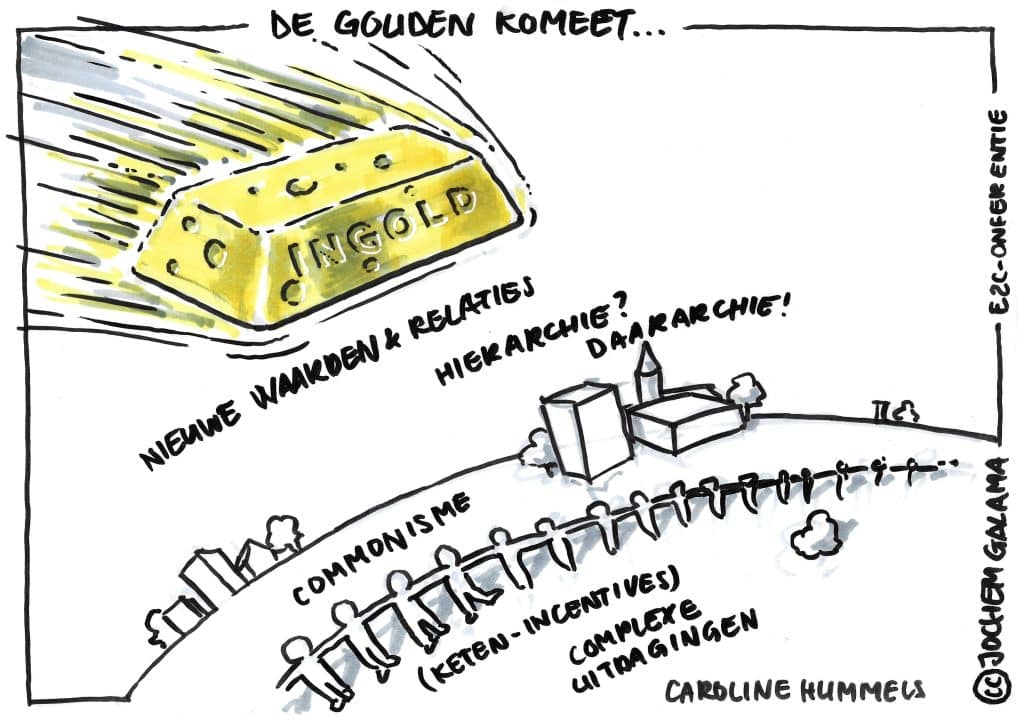 DE GOUDEN KOMEET...
INGOLD
NIEUWE WAARDEN & RELATIES
HIERARCHIE?
DAARARCHIE!
COMMONISME
(KETEN-INCENTIVES)
COMPLEXE
UITDAGINGEN
CAROLINE HUMMELS
cc JOCHEM GALAMA
E2C-ONFERENTIE